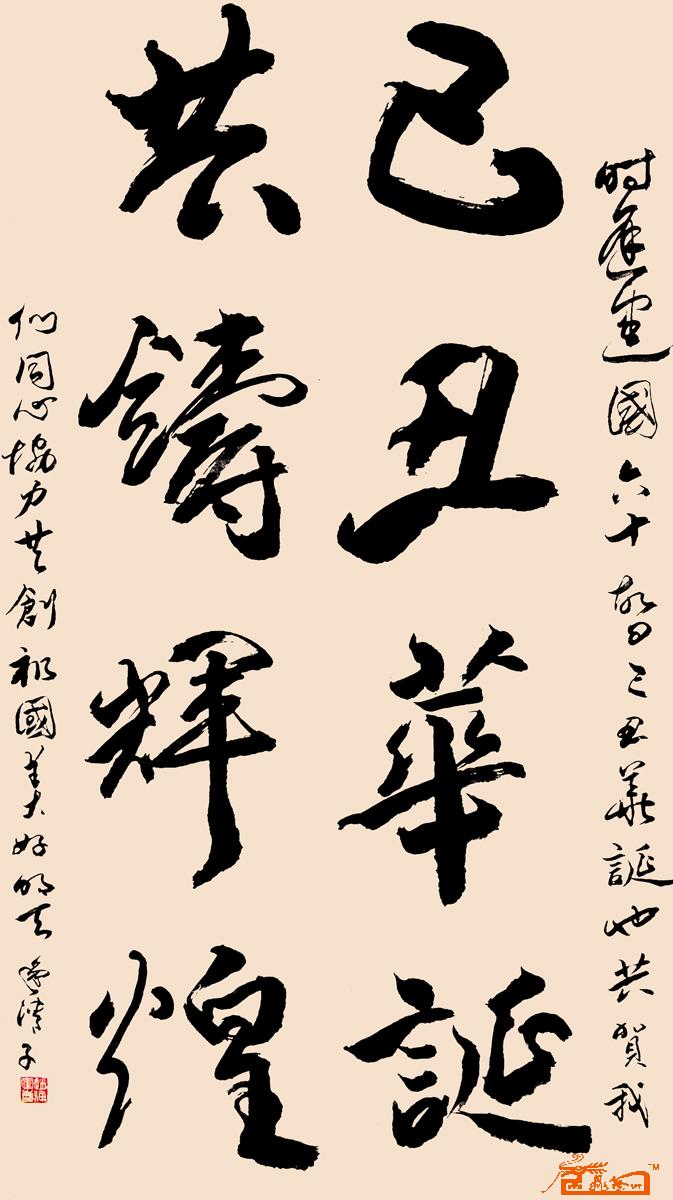 时逢建國六十己丑華誕也共賀我
己丑華誕
共鑄輝煌
们同心協力共創祖國美好明天